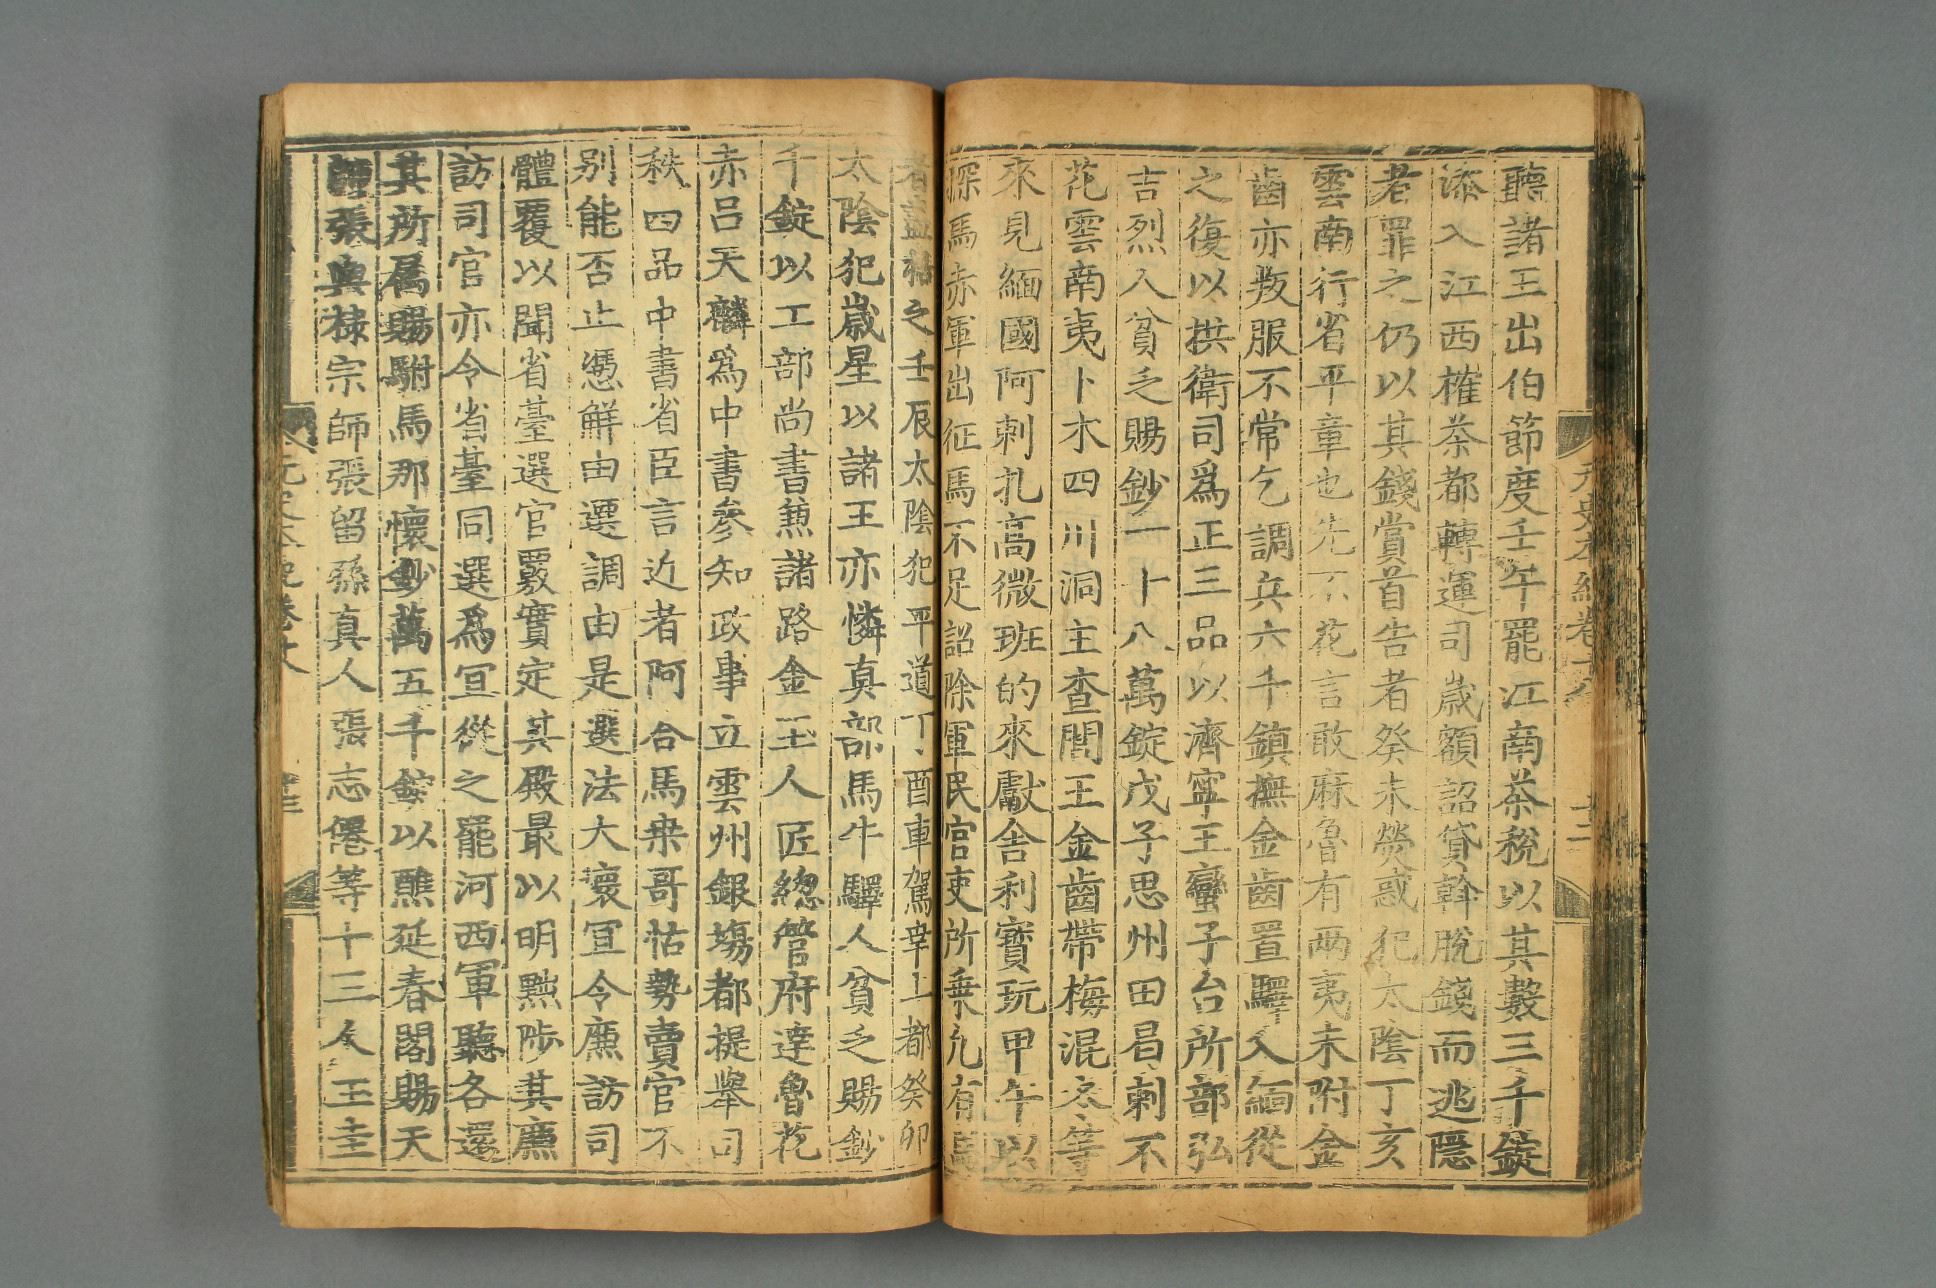 聽諸王出伯節度壬午罷江南茶稅以其數三千錠
添入江西榷茶都轉運司歳額詔貸斡脫錢而逃隱
者罪之仍以其錢賞首告者癸未熒惑犯太陰丁亥
雲南行省平章也先不花言敢麻魯有兩夷未附金
齒亦叛服不常乞調兵六千鎮撫金齒置驛入緬從
之復以拱衛司爲正三品以濟寧王蠻子台所部弘
吉烈人貧乏賜鈔一十八萬錠戊子思州田曷剌不
花雲南夷卜木四川洞主查閭王金齒帶梅混冬等
來見緬國阿剌扎高微班的來獻舍利寶玩甲午以
探馬赤軍出征馬不足詔除軍民官吏所乗凡有馬
者盡括之壬辰太陰犯平道丁酉車駕幸上都癸卯
太陰犯歳星以諸王亦憐真部馬牛驛人貧乏賜鈔
千錠以工部尚書兼諸路金玉人匠緫管府達魯花
赤呂天麟爲中書參知政事立雲州銀場都提舉司
秩四品中書省臣言近者阿合馬桒哥怙勢賣官不
别能否止憑解由遷調由是選法大壞宣令廉訪司
體覆以聞省臺選官覈實定其殿最以明黜陟其廉
訪司官亦令省臺同選爲宜從之罷河西軍聽各還
其所属賜駙馬那懷鈔萬五千錠以醮延春閣賜天
師張與棣宗師張留孫真人張志僊等十三人玉圭